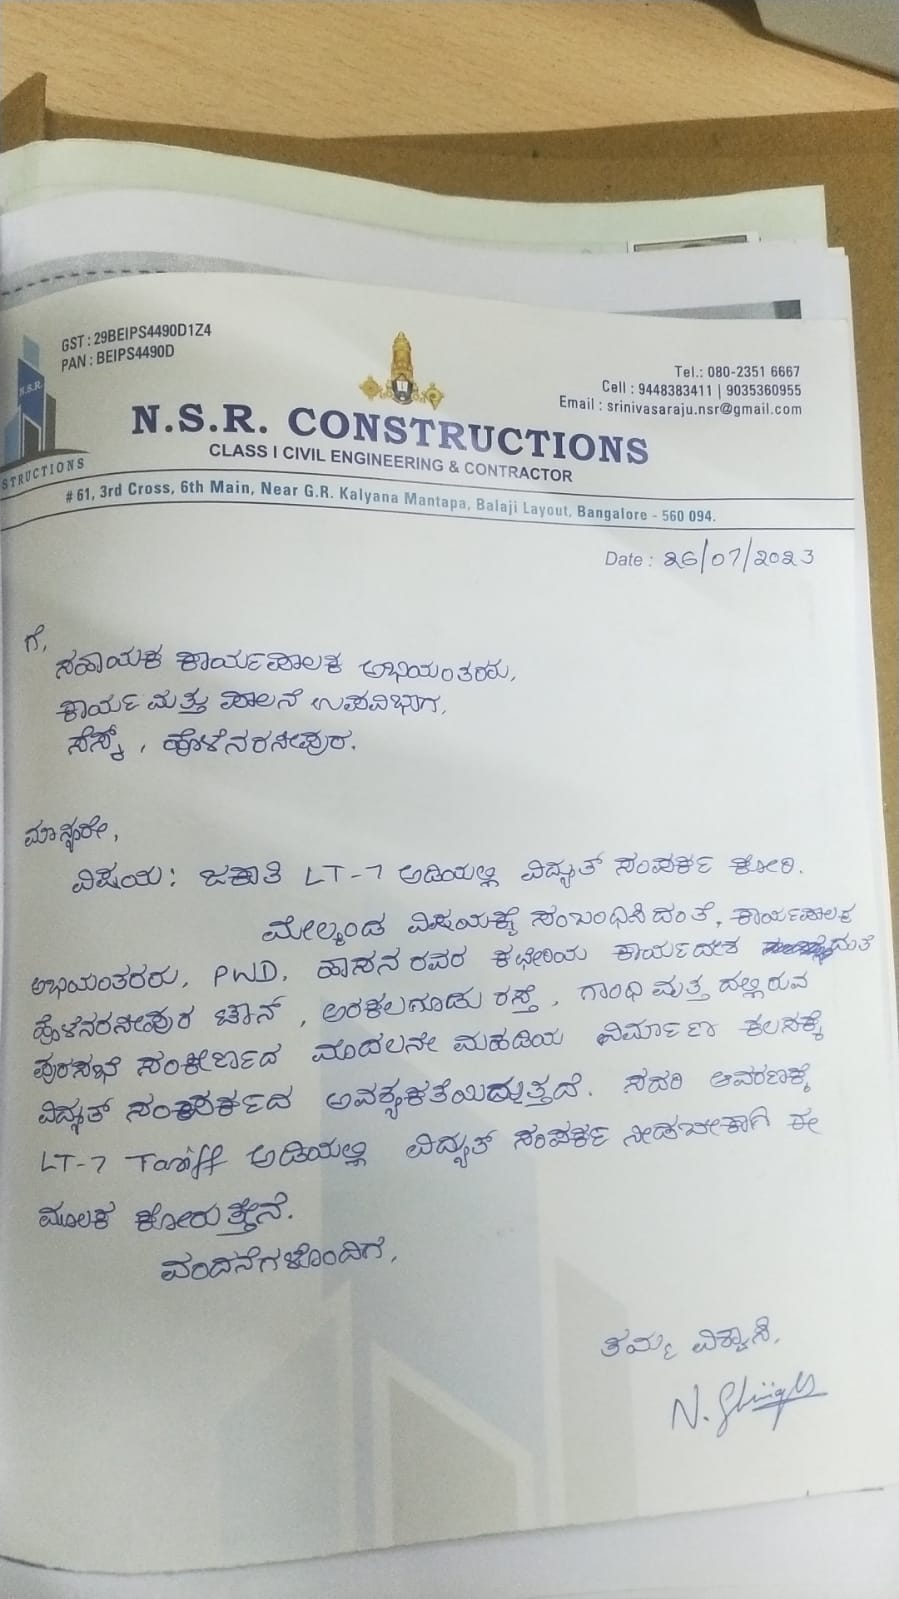 GST : 29BEIPS4490D1Z4
PAN : BEIPS4490D
Tel.: 080-2351 6667
Cell : 9448383411 | 9035360955
Email : srinivasaraju.nsr@gmail.com
N.S.R.
STRUCTIONS
N.S.R. CONSTRUCTIONS
CLASS I CIVIL ENGINEERING & CONTRACTOR
# 61, 3rd Cross, 6th Main, Near G.R. Kalyana Mantapa, Balaji Layout, Bangalore - 560 094.
Date : 26/07/2023
ಗೆ,
ಸಹಾಯಕ ಕಾರ್ಯಪಾಲಕ ಅಭಿಯಂತರರು,
ಕಾರ್ಯ ಮತ್ತು ಪಾಲನೆ ಉಪವಿಭಾಗ,
ಸೆಸ್ಕ್, ಹೊಳೆನರಸೀಪುರ.
ಮಾನ್ಯರೇ,
ವಿಷಯ: ಜಕಾತಿ LT-7 ಅಡಿಯಲ್ಲಿ ವಿದ್ಯುತ್ ಸಂಪರ್ಕ ಕೋರಿ.
ಮೇಲ್ಕಂಡ ವಿಷಯಕ್ಕೆ ಸಂಬಂಧಿಸಿದಂತೆ, ಕಾರ್ಯಪಾಲಕ
ಅಭಿಯಂತರರು, PWD, ಹಾಸನ ರವರ ಕಛೇರಿಯ ಕಾರ್ಯದೇಶ
ಹೊಳೆನರಸೀಪುರ ಟೌನ್, ಅರಕಲಗೂಡು ರಸ್ತೆ, ಗಾಂಧಿ ವೃತ್ತ ದಲ್ಲಿರುವ
ಪುರಸಭೆ ಸಂಕೀರ್ಣದ ಮೊದಲನೇ ಮಹಡಿಯ ನಿರ್ಮಾಣ ಕೆಲಸಕ್ಕೆ
ವಿದ್ಯುತ್ ಸಂಪರ್ಕದ ಅವಶ್ಯಕತೆಯಿದ್ದುತ್ತದೆ. ಸದರಿ ಆವರಣಕ್ಕೆ
LT-7 Tariff ಅಡಿಯಲ್ಲಿ ವಿದ್ಯುತ್ ಸಂಪರ್ಕ ನೀಡಬೇಕಾಗಿ ಈ
ಮೂಲಕ ಕೋರುತ್ತೇನೆ.
ವಂದನೆಗಳೊಂದಿಗೆ,
ತಮ್ಮ ವಿಶ್ವಾಸಿ,